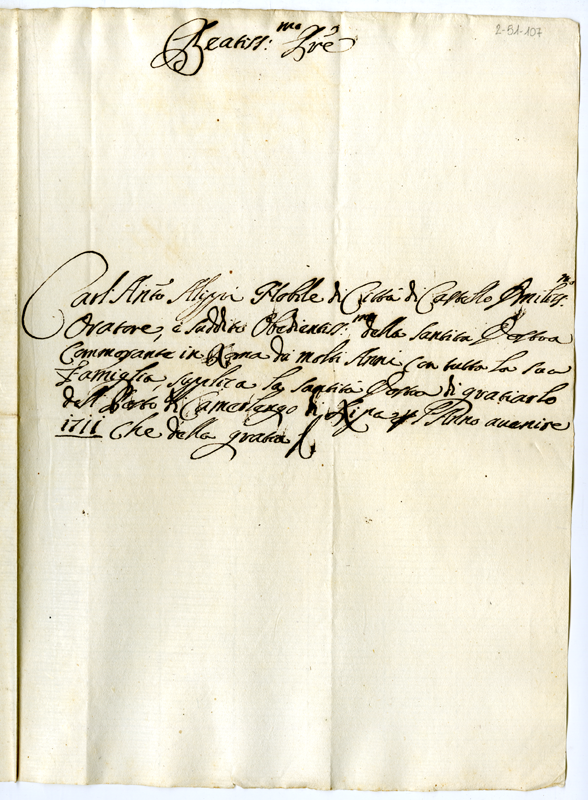 2-51-107
Beatiss:mo Pre
Carl: Anto Nobile di Città di Castello Umiliss:mo
Oratore, e suddito Obedientiss:mo della Santità Vostra
Commorante in Roma da molti Anni con tutta la sua
Famiglia supplica la Santità Vostra di gratiarlo
dell di Camerlengo di Ripa p l'Anno avenire
1711 Che della gratia